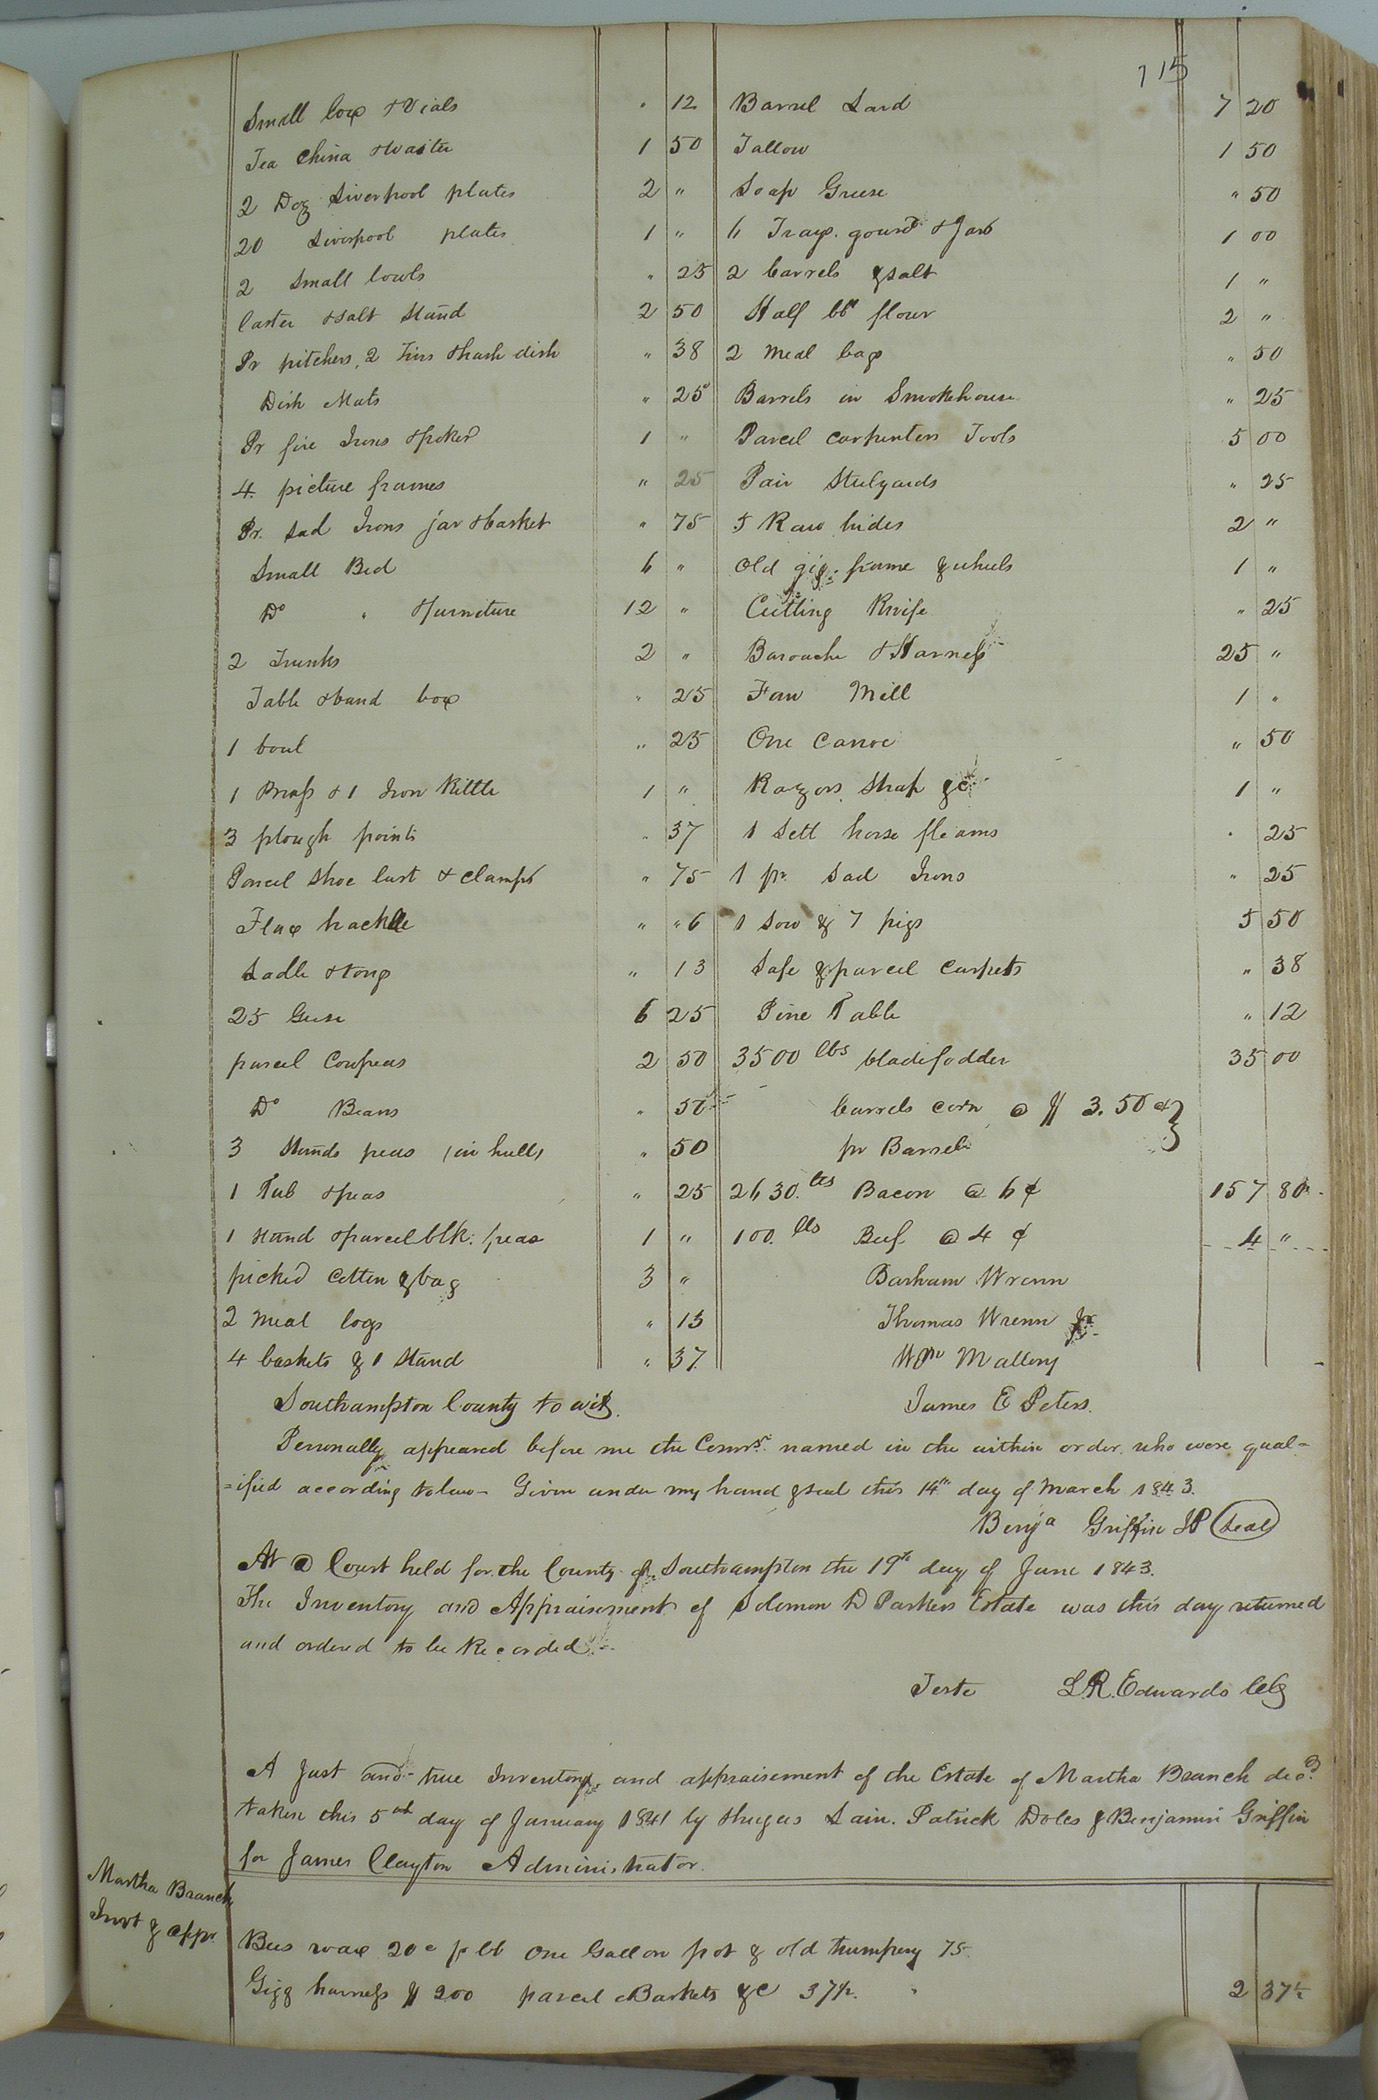 115
Small box & Vials " 12
Tea China & Waiter 1 50
2 Doz Liverpool plates 2 "
20 Liverpool plates 1 "
2 Small bowls " 25
Caster & salt Stand 2 50
Pr pitchers, 2 Tins & hash dish " 38
Dish Mats " 25
Pr fire Irons & poker 1 "
4 picture frames " 25
Pr. Sad Irons jar & basket " 75
Small Bed 6 "
Do " & furniture 12 "
2 Trunks 2 "
Table & band box " 25
1 bowl " 25
1 Brass & 1 Iron Kittle 1 "
3 plough points " 37
Parcel Shoe last & clamps " 75
Flax hackle " "6
Ladle & tongs " 13
25 Geese 6 25
parcel Cowpeas 2 50
Do Beans " 50
3 Stands peas (in hull) " 50
1 Tub & peas " 25
1 Stand & parcel blk. peas 1 "
picked Cotton & bag 3 "
2 Meal bags " 13
4 baskets & 1 Stand " 37
Barrel Lard 7 20
Tallow 1 50
Soap Grease " 50
6 Trays. gourd & Jars 1 00
2 barrels & salt 1 "
Half bbl flour 2 "
2 Meal bags " 50
Barrels in Smokehouse " 25
Parcel carpenters Tools 5 00
Pair Stelyards " 25
5 Raw hides 2 "
Old gig frame & wheels 1 "
Cutting Knife " 25
Barouche & Harness 25 "
Fan Mill 1 "
One Canoe " 50
Razors Strap &c 1 "
1 Sett horse fleams " 25
1 pr. Sad Irons " 25
1 Sow & 7 pigs 5 50
Safe & parcel Carpets " 38
Pine Table " 12
3500 lbs bladefodder 35 00
barrels corn @ $ 3.50 cts
pr Barrel
2630. lbs Bacon @ 6 ¢ 157 80
100. lbs Beef @ 4 ¢ 4 "
Barham Wrenn
Thomas Wrenn Jr
Wm Mallory
James E Peters.
Southampton County to wit.
Personally appeared before me the Comrs. named in the within order. who were qual=
=ified according to law- Given under my hand & seal this 14th day of March 1843.
Benja Griffin JP (Seal)
At a Court held for the County of Southampton the 19th day of June 1843.
The Inventory and Appraisement of Solomon D Parkers Estate was this day returned
and ordered to be Recorded
Teste L.R. Edwards Clk
A Just and true Inventory, and appraisement of the Estate of Martha Branch decd.
taken this 5th day of January 1841 by Lain. Patrick Doles & Benjamin Griffin
for James Clayton Administrator.
Martha Branch
Invt & appr.
Bees wax 20c p lb One Gallon pot & old trumpery 75.
Gigg harness $ 2.00 parcel Baskets &c 37½. 2 37½